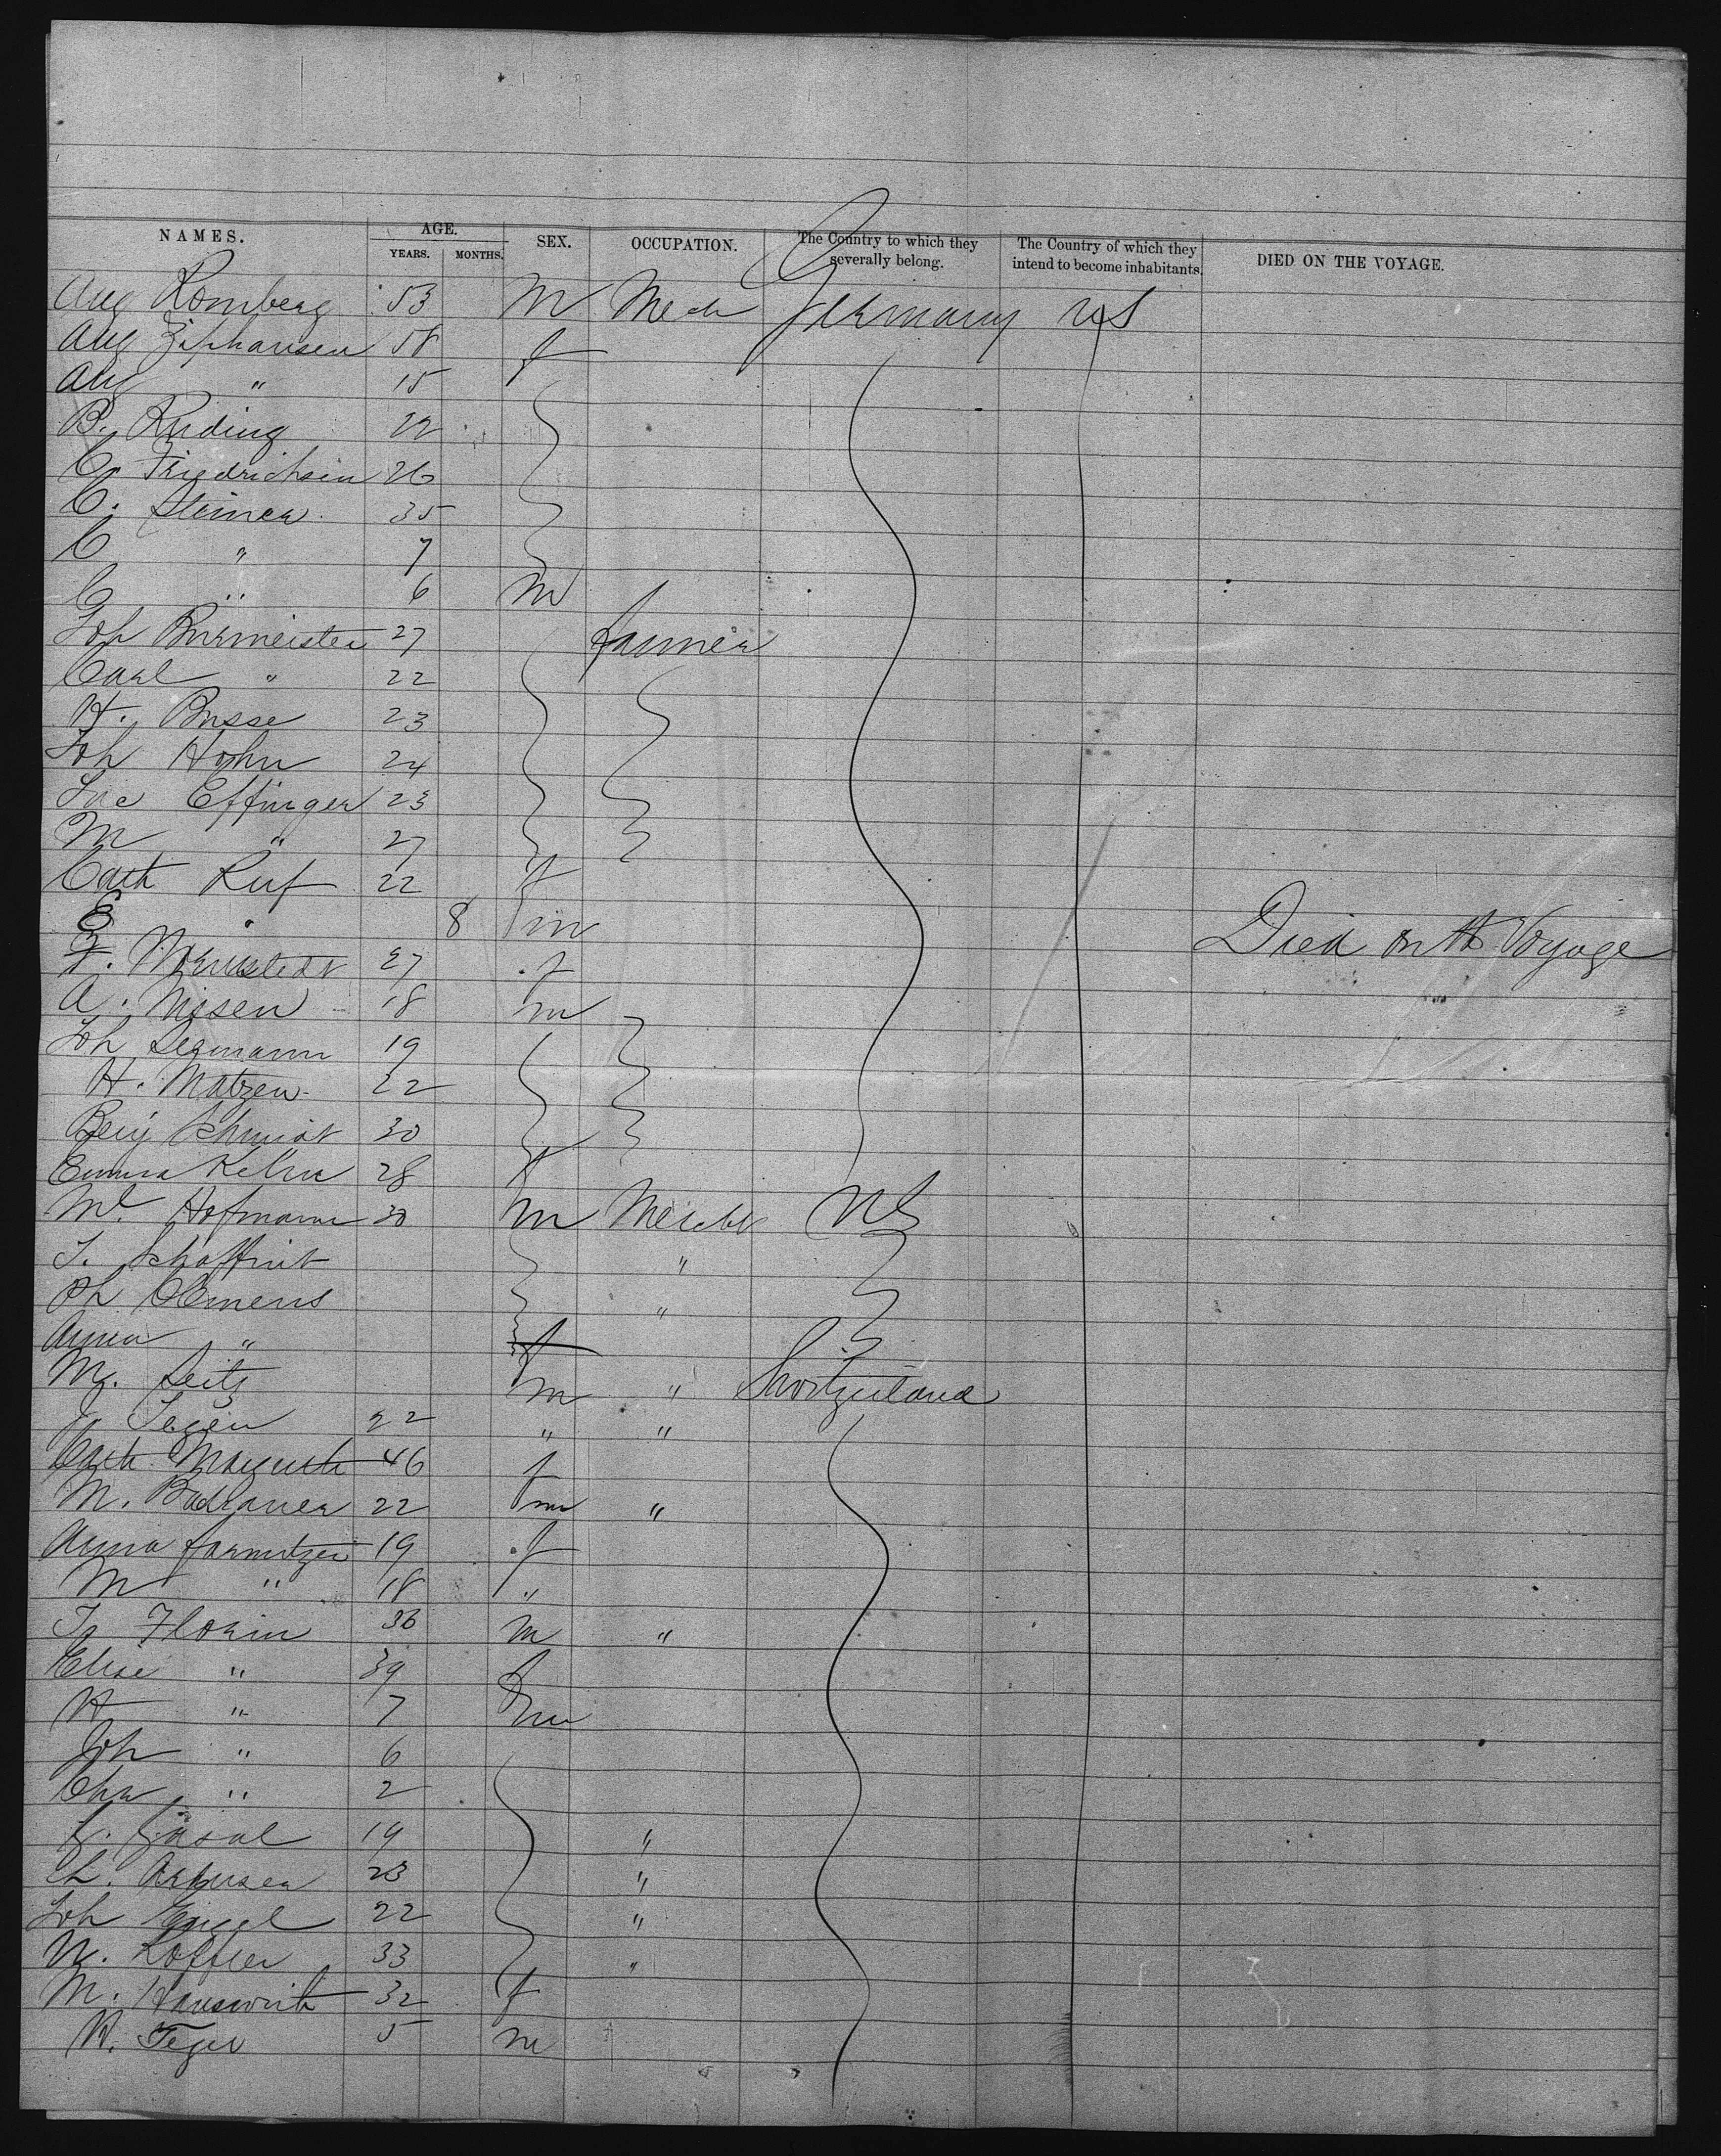 NAMES. AGE. YEARS. MONTHS. SEX. OCCUPATION. The Country to which they severally belong. The Country of which they intend to become inhabitants. DIED ON THE VOYAGE.
Aug Romberg 53 M Mech Germany US
Aug Ziphausen 58 f
Aug " 15
B. Ruding 22
C. Friedrichsen 26
C. Steiner 35
C " 7
C " 6 m
Joh Burmeister 27 farmer
Carl " 22
H. Busse 23
Joh Hohn 24
Effinger 23
M " 27
Cath Ruf 22 f
E " 8 m Died on the Voyage
27 f
A. Nissen 18 m
Joh Segmann 19
H. Matzen 22
Benj Schmidt 30
Emma 28 f
Hofmann 30 m Mercht US
"
Ph Clemens "
Anna " f
M. Seitz m " Switzerland
J. 22 " "
Cath 46 f
M. 22 m "
Anna 19 f
M " 18 "
Florin 36 m "
Elise " 39 f
H " 7 m
Joh " 6
Chr " 2
19 "
23 "
Joh Engel 22 "
N. Loffler 33 "
M. Hauswirth 32 f
5 m